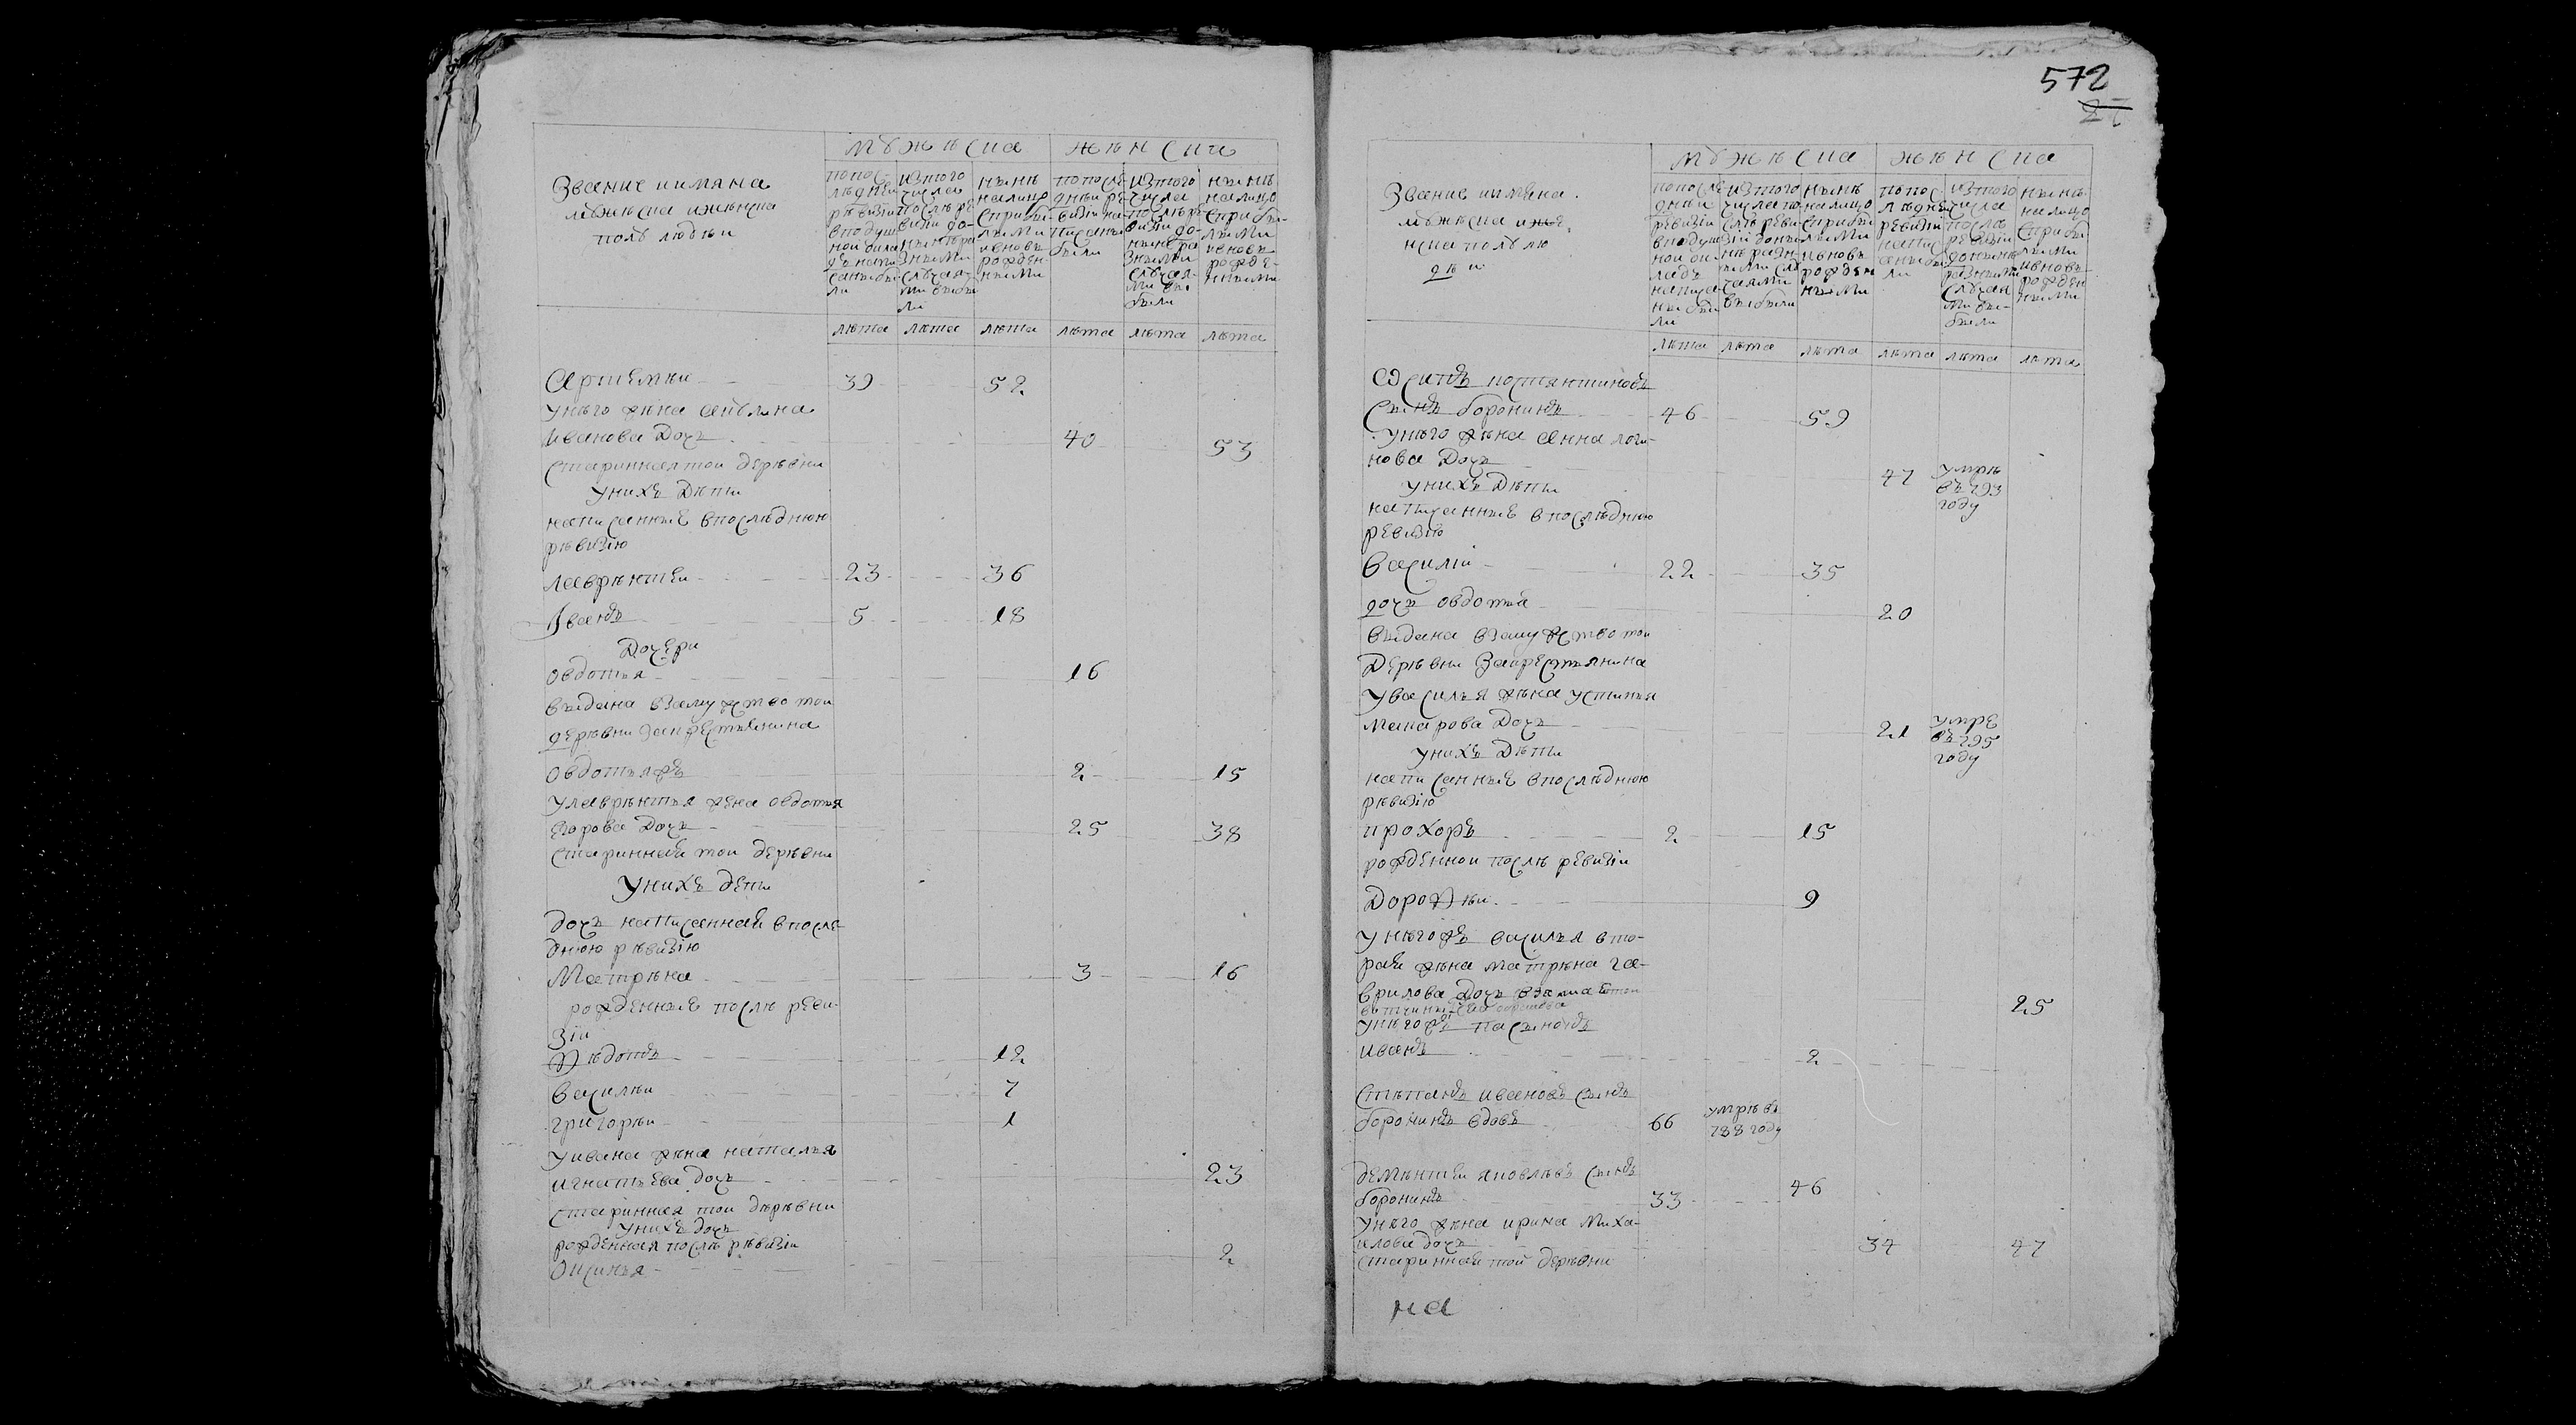 Звание имяна
мужеска иженска
полу людеи
мужеска
женски
попос-
леднеи
ревизии
вподуш
ной окла
де напи
саны бы
ли
изтого
числа
послере
визии до-
ныне ра
зными
случая-
ми выбы
ли
ныне
налицо
сприбы
лыми
ивновь
рожден
ными
попосле
днеи ре
визии на
писаны
были
изтого
числа
послере
визии до-
ныне ра
зными
случая-
ми вы
были
ныне
налицо
сприбы-
лыми
ивновь
рожде-
нными
лета лета лета лета лета лета
Артиемеи 39 52
унего жена Акулина
Иванова дочь 40 53
старинная тои деревни
уних дети
написанные впоследнюю
ревизию
лаврентеи 23 36
Iванъ 5 18
Дочери
овдотья 16
выдана взамужство тои
деревни закрестьянина
овдотья жъ 2 15
улаврентья жена овдотья
Егорова дочь 25 38
стариннаѣ тои деревни
унихъ дети
дочь написаннаѣ впосле-
днюю ревизию
Матрена 3 16
рожденные после реви-
зии
Федотъ 12
василеи 7
григореи 1
уивана жена наталья
игнатьева дочь 23
старинная тои деревни
унихъ дочь
рожденная после ревизiи
Оксинья 2
572
Звание имяна
мужеска иже
нска полу лю
деи
мужеска
женска
попосле
днеи
ревизии
вподуш
ной ок
ладъ
написа
ны бы
ли
изтого
числа по
сле реви
зiи доны
не разн
ыми слу
чаями
выбыли
ныне
налицо
сприбы
лыми
ивновь
рожден
ными
попос-
ледне
ревизiи
напис
аны бы
ли
изтого
числа
после
ревизiи
доныне
разными
случая
ми вы-
были
ныне
налицо
сприбы
лыми
ивновь
рожден
ными
лета лета лета лета лета лета
Осипъ костянтиновъ
сынъ боронинъ 46 59
унего жена Анна логи-
нова дочь 47 умре
въ 793
году
унихъ дети
написанные впоследнюю
ревизiю
василiи 22 35
дочь овдотья 20
выдана взамужство тои
деревни закрестьянина
увасилья жена устинья
макарова дочь 21 умре
въ 795
году
унихъ дети
написанные впоследнюю
ревизiю
прохоръ 2 15
рожденнои после ревизiи
Дорофеи 9
унегожъ василья вто-
раѣ жена матрена га-
врилова дочь взята
25
унегожъ пасынокъ
иванъ 2
степанъ ивановъ сынъ
боронинъ вдовъ 66 умре въ
788 году
дементеи яковлевъ сынъ
боронинъ 33 46
унего жена ирина миха-
илова дочь 34 47
стариннаѣ той деревни
на